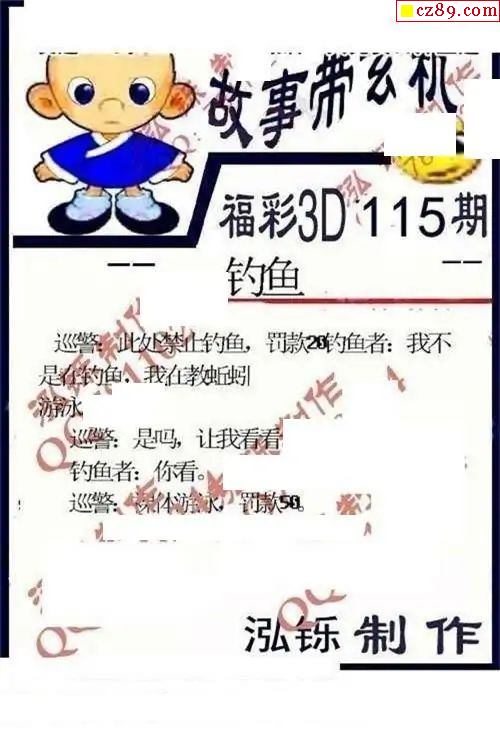 cz89.com
故事带玄机
福彩3D 115期
钓鱼
巡警：此处禁止钓鱼，罚款20钓鱼者：我不
是在钓鱼，我在教蚯蚓
游泳
巡警：是吗，让我看看
钓鱼者：你看。
巡警：裸体游泳，罚款50。
泓铄制作